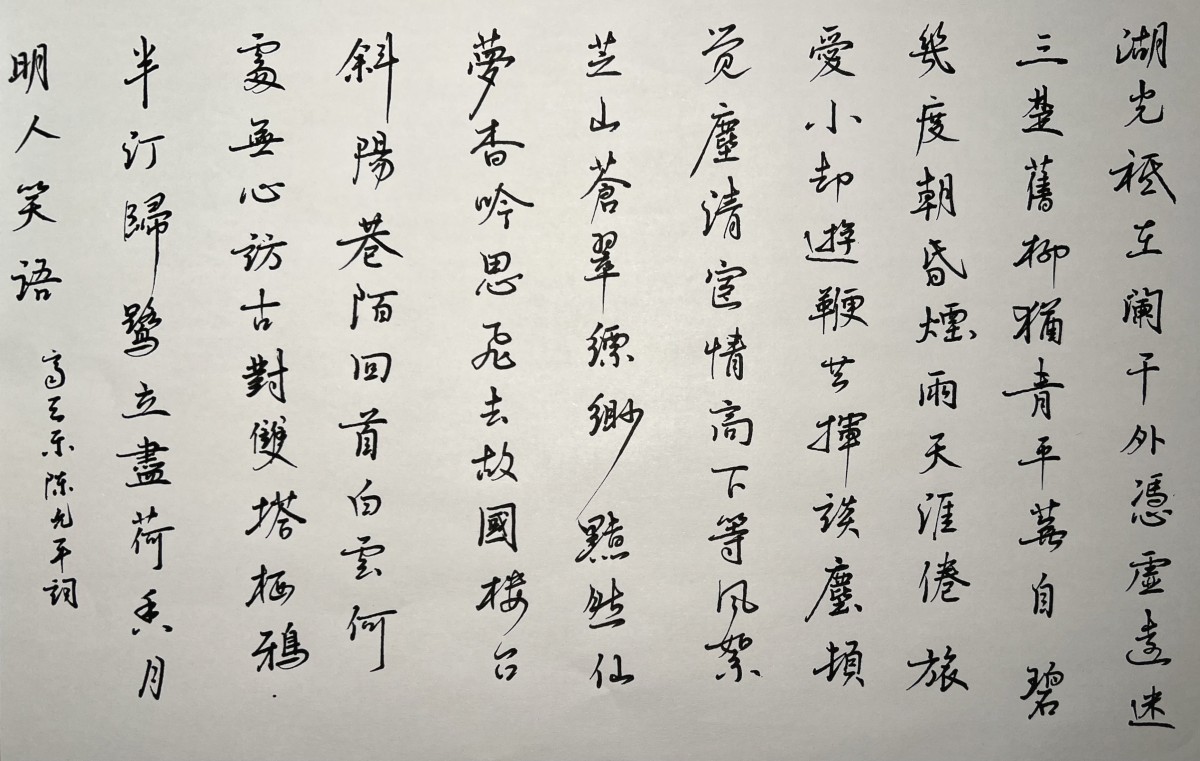 湖光祗在阑干外憑虚遠迷
三楚舊柳猶青平蕪自碧
幾度朝昏煙雨天涯倦旅
愛小却遊鞭共揮談麈頓
觉塵清宦情高下等风絮
芝山蒼翠縹緲黯然仙
夢杳吟思飛去故國楼台
斜陽巷陌回首白雲何
處無心訪古對雙塔栖鴉
半汀歸鷺立盡荷香月
明人笑语
齐天乐陈允平詞